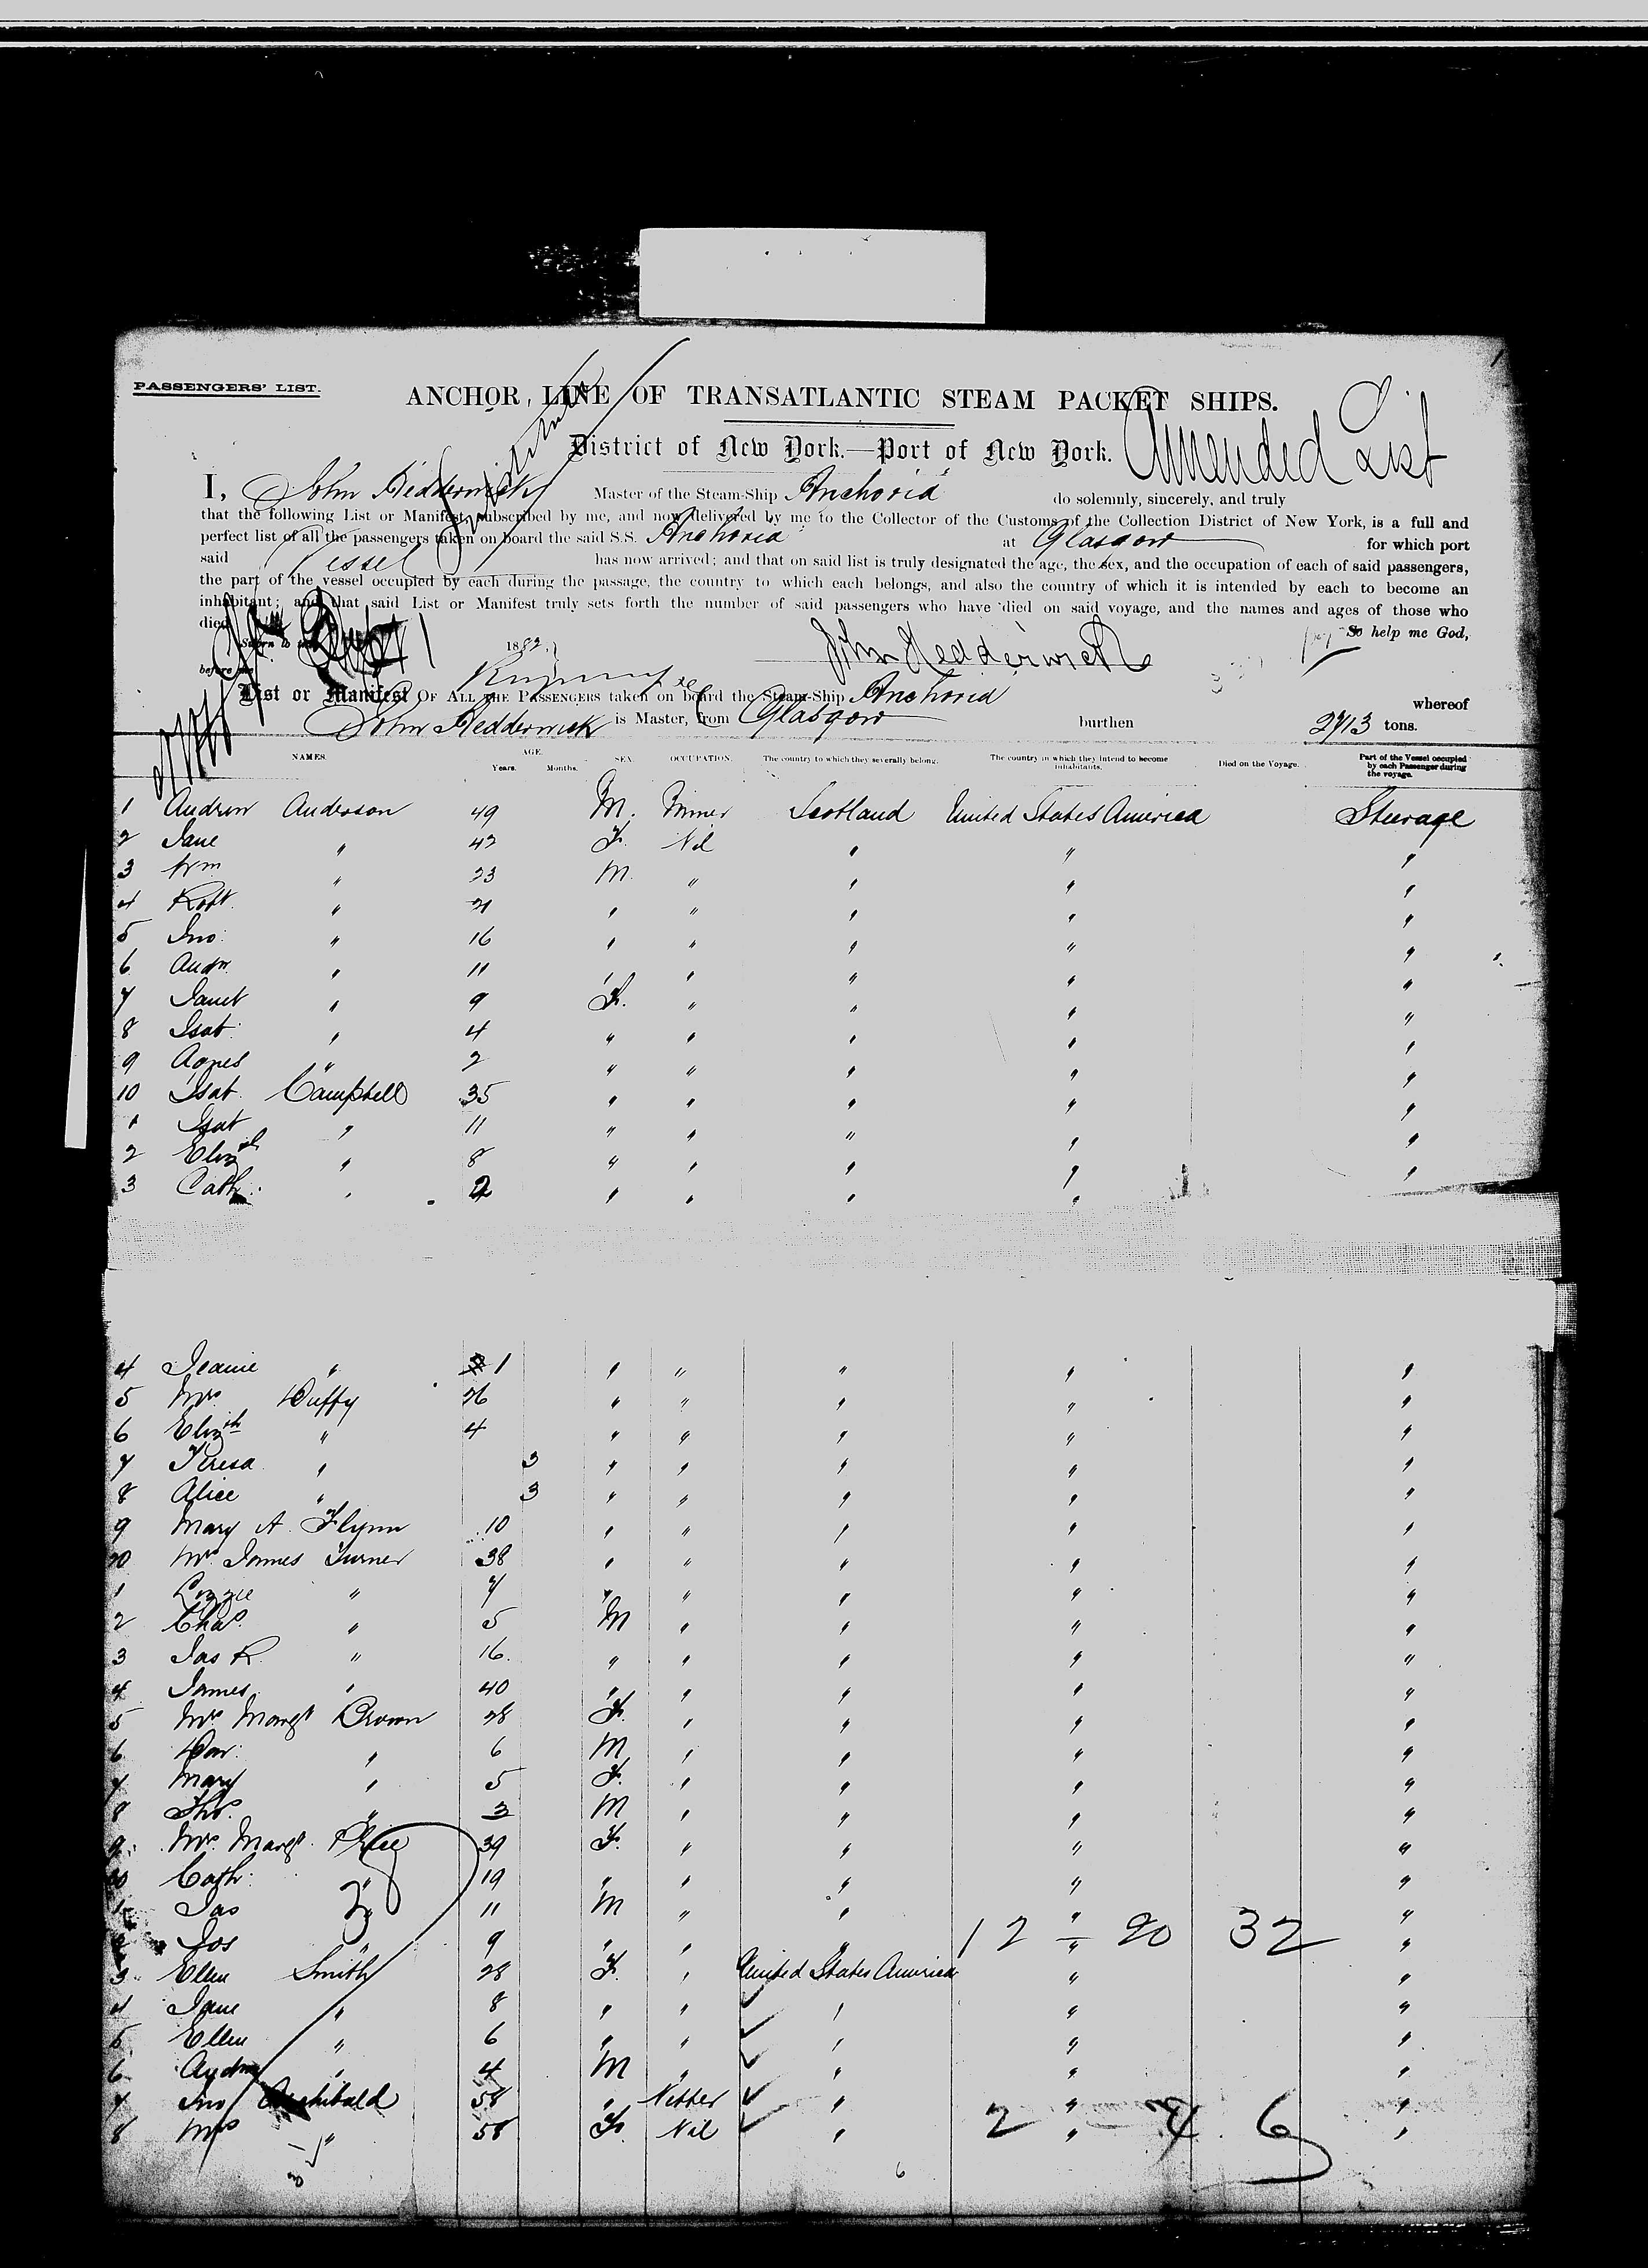 PASSENGERS' LIST.
ANCHOR LINE OF TRANSATLANTIC STEAM PACKET SHIPS.
District of New York.—Port of New York.
Amended List
I, John Hedderwick Master of the Steam-Ship Anchoria do solemnly, sincerely, and truly
that the following List or Manifest, subscribed by me, and now delivered by me to the Collector of the Customs of the Collection District of New York, is a full and
perfect list of all the passengers taken on board the said S.S. Anchoria at Glasgow for which port
said Vessel has now arrived; and that on said list is truly designated the age, the sex, and the occupation of each of said passengers,
the part of the vessel occupied by each during the passage, the country to which each belongs, and also the country of which it is intended by each to become an
inhabitant; and that said List or Manifest truly sets forth the number of said passengers who have died on said voyage, and the names and ages of those who
died So help me God,
Sworn to 1882. John Hedderwick
before me
List or Manifest OF ALL THE PASSENGERS taken on board the Steam-Ship Anchoria whereof
John Hedderwick is Master, from Glasgow burthen 2713 tons.
NAMES. AGE. Years. Months. SEX. OCCUPATION. The country to which they severally belong. The country in which they intend to become inhabitants. Died on the Voyage. Part of the Vessel occupied by each Passenger during the voyage.
1 Andrew Anderson 49 M. Miner Scotland United States America Steerage
2 Jane " 42 F. Nil " " "
3 Wm " 23 M. " " " "
4 Robt. " 21 " " " " "
5 Jno. " 16 " " " " "
6 Andw. " 11 " " " " "
7 Janet " 9 F. " " " "
8 Isab. " 4 " " " " "
9 Agnes " 2 " " " " "
10 Isab. Campbell 35 " " " " "
1 Isab " 11 " " " " "
2 Elizth " 8 " " " " "
3 Cath. " 2 " " " "
4 Jeanie " 1 " " " " "
5 Mrs. Duffy 26 " " " " "
6 Elizth " 4 " " " " "
7 Teresa " 3 " " " " "
8 Alice " 3 " " " " "
9 Mary A. Flynn 10 " " " " "
20 Mrs. James Turner 38 " " " " "
1 Lizzie " 7 " " " " "
2 Chas. " 5 M " " " "
3 Jas R. " 16. " " " " "
4 James " 40 " " " " "
5 Mrs Margt Brown 28 F. " " " "
6 " 6 M " " " "
7 Mary " 5 F. " " " "
8 Thos. " 3 M " " " "
9 Mrs. Margt. 39 F. " " " "
30 Cath. " 19 " " " " "
1 Jas " 11 M " " " "
2 Jos " 9 " " " " " 12 — 20 32
3 Ellen Smith 28 F. " United States America " "
4 Jane " 8 " " " " "
5 Ellen " 6 " " " " "
6 Andw " 4 M " " " "
7 Jno Archibald 58 " " " "
8 Mrs " 58 F. Nil " " " 2 4 6